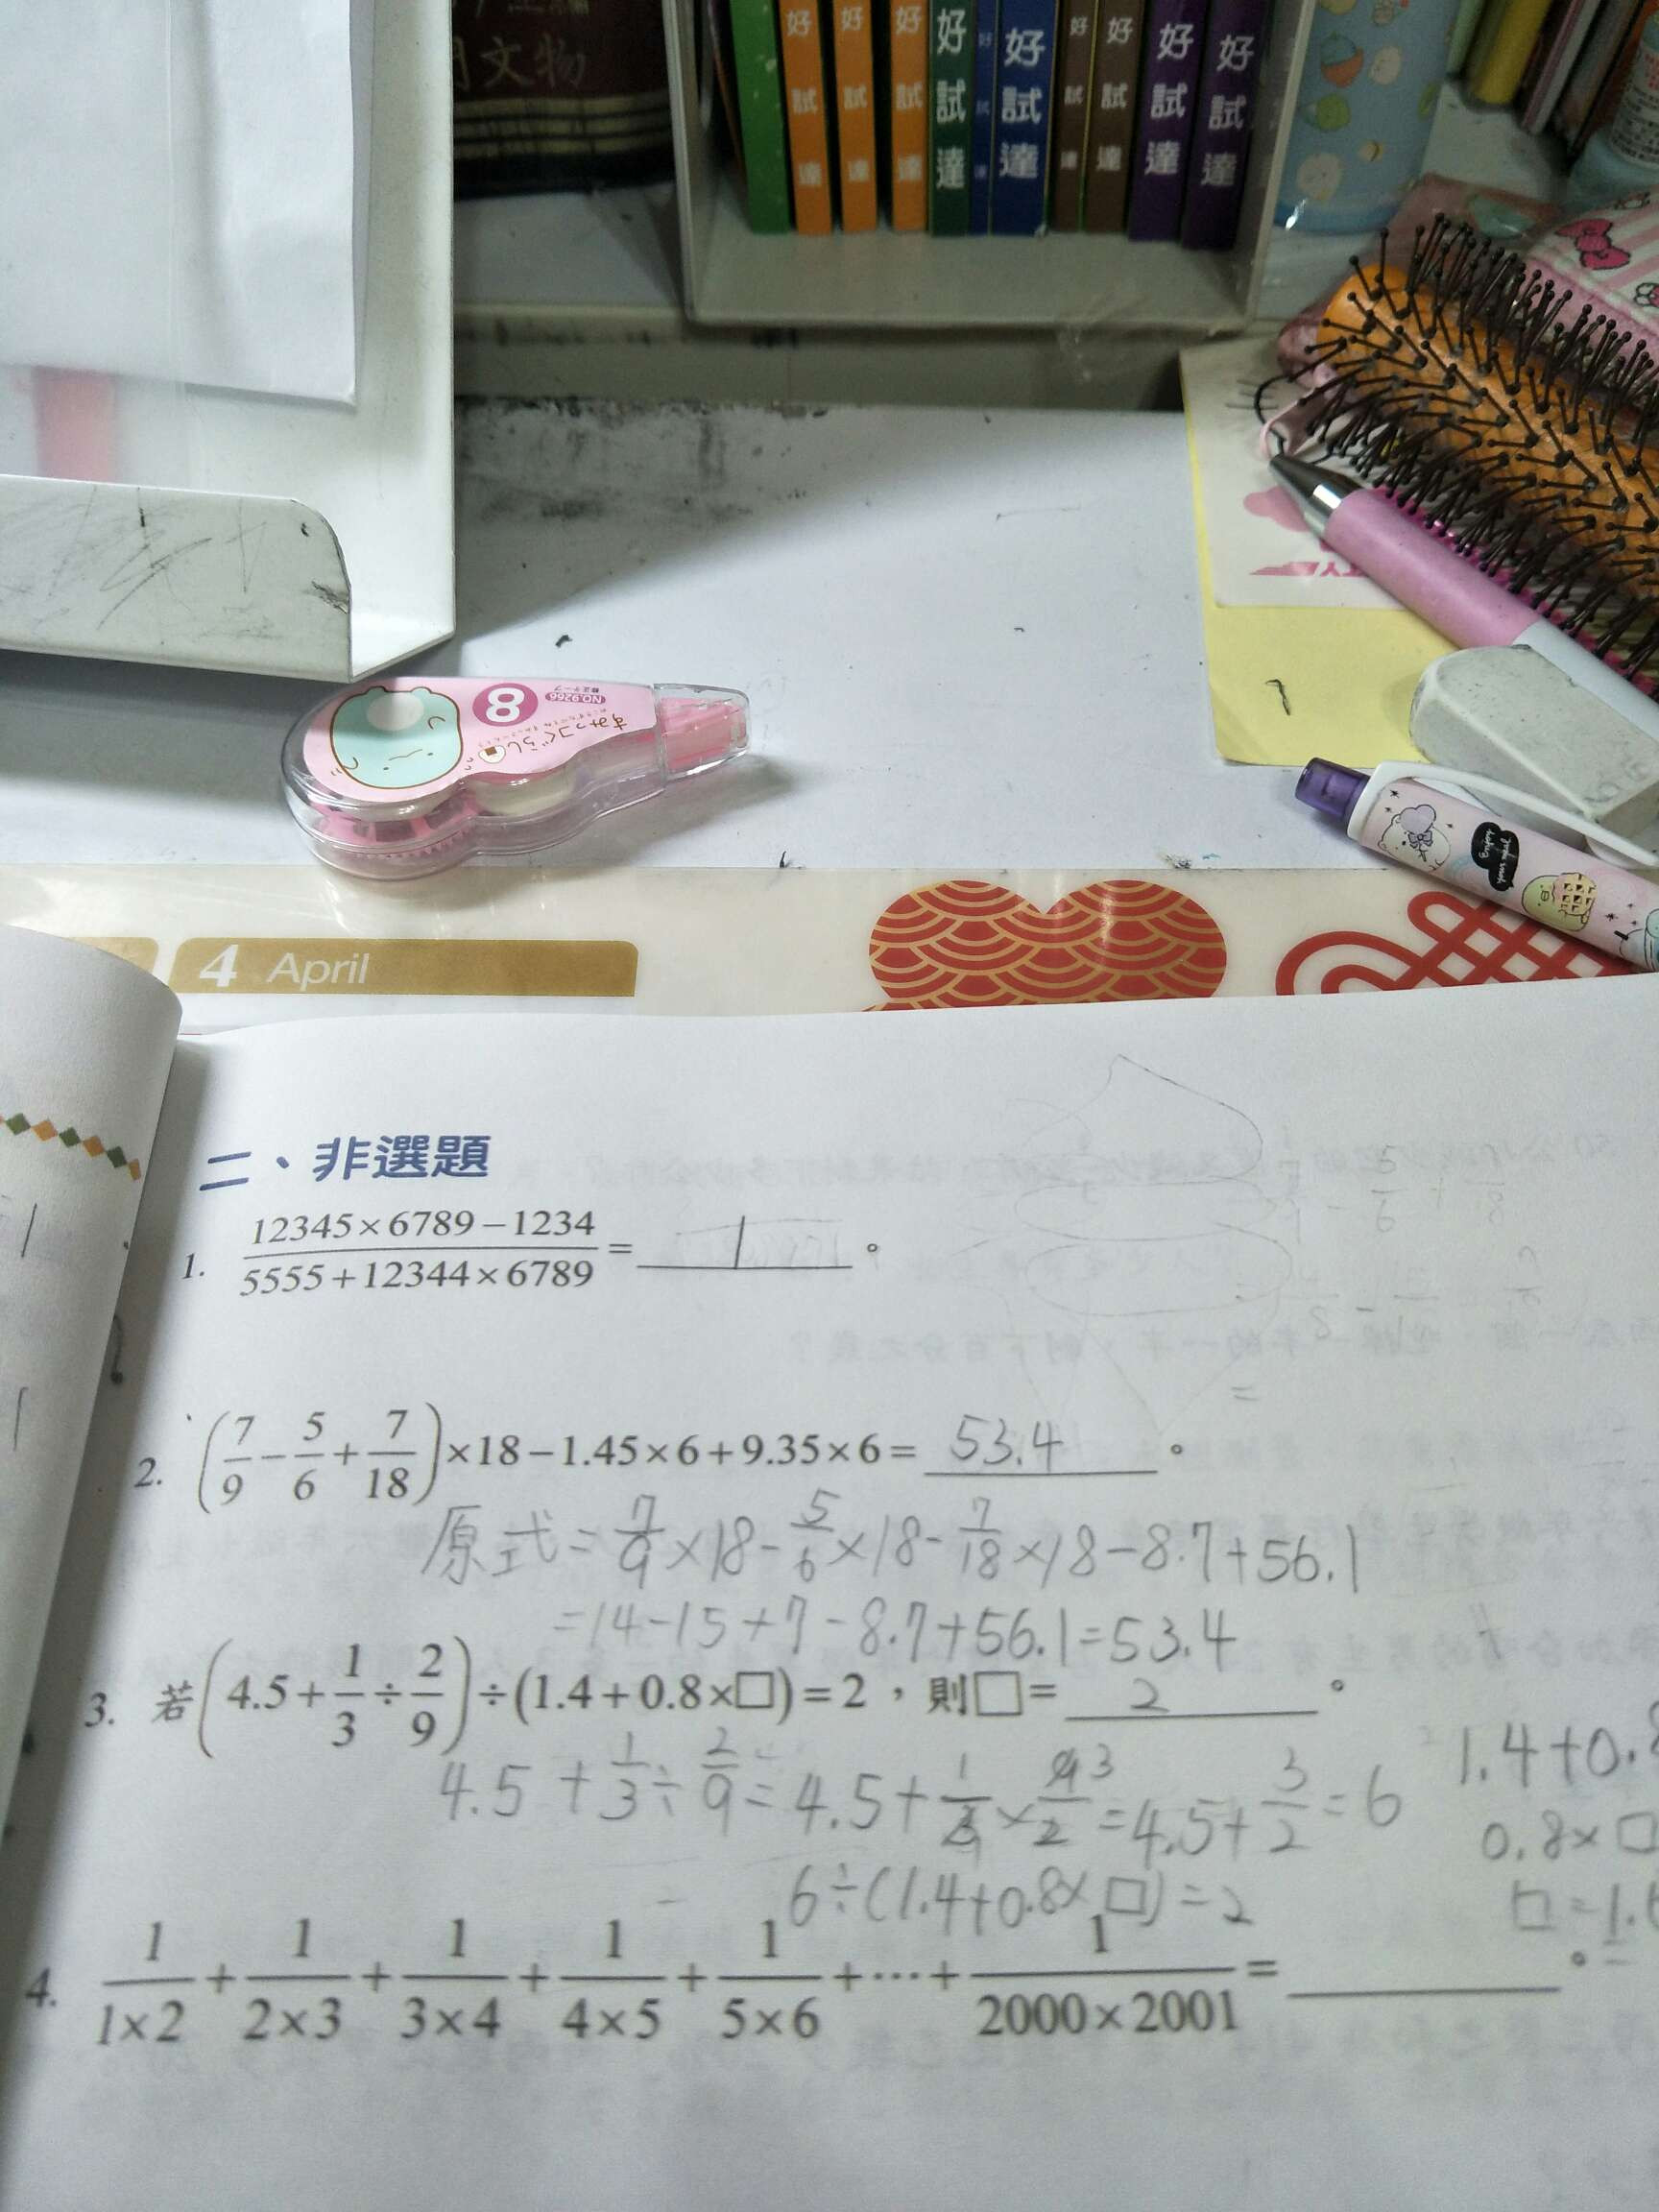 文物
好試達
好試達
好試達
好試達
好試達
好試達
好試達
好試達
好試達
好試達
8
NO.9266
すみっコぐらし
4 April
二、非選題
1. (12345×6789−1234)/(5555+12344×6789) = 1 。
2. (7/9 − 5/6 + 7/18)×18−1.45×6+9.35×6= 53.4 。
原式=7/9×18-5/6×18-7/18×18-8.7+56.1
=14-15+7-8.7+56.1=53.4
3. 若(4.5+1/3÷2/9)÷(1.4+0.8×□)=2，則□= 2 。
4.5+1/3÷2/9=4.5+1/3×9/2 3=4.5+3/2=6
6÷(1.4+0.8×□)=2
1.4+0.8
0.8×□
□=1.6
4. 1/(1×2)+1/(2×3)+1/(3×4)+1/(4×5)+1/(5×6)+···+1/(2000×2001)= 。